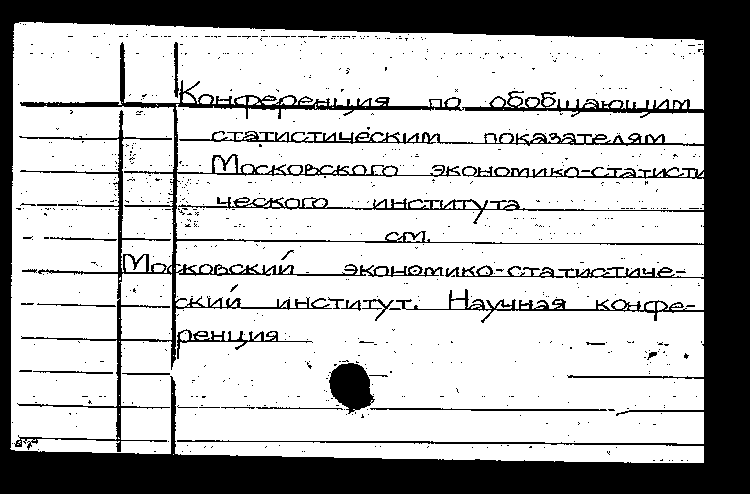 Конференция по обобщающим
статистическим показателям
Московского экономико-статисти
ческого института
см.
Московский экономико-статистиче-
ский институт. Научная конфе-
ренция